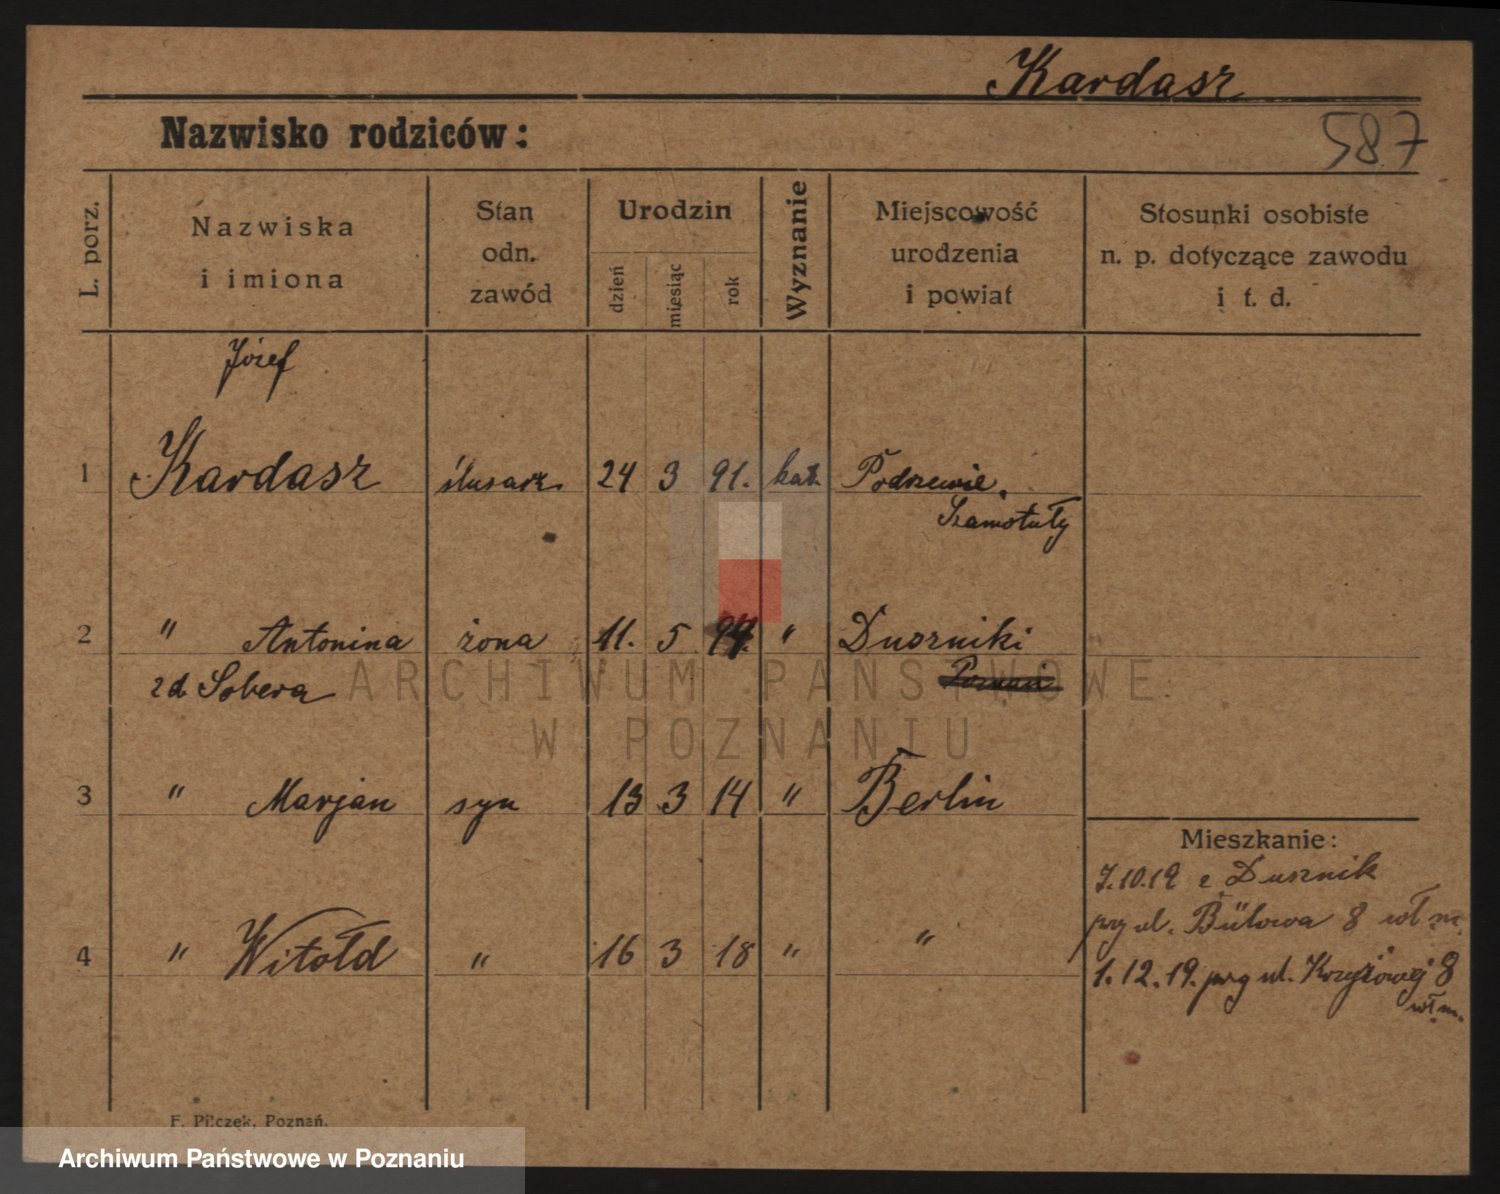 Kardasz
Nazwisko rodziców:
587
L. porz.
Nazwiska
i imiona
Stan
odn.
zawód
Urodzin
dzień
miesiąc
rok
Wyznanie
Miejscowość
urodzenia
i powiat
Stosunki osobiste
n. p. dotyczące zawodu
i t. d.
Józef
1 Kardasz ślusarz 24 3 91. kat. Podrzewie,
Szamotuły
2 " Antonina żona 11. 5 94. " Duszniki
zd. Sobera Poznań
3 " Marjan syn 13 3 14 " Berlin
Mieszkanie:
7.10.19 z Dusznik
prz ul. Bülowa 8 wł m.
4 " Witołd " 16 3 18 " "
1.12.19. prz ul. Krzyżowej 8
wł m.
F. Pilczek, Poznań.
ARCHIWUM PAŃSTWOWE
W POZNANIU
Archiwum Państwowe w Poznaniu